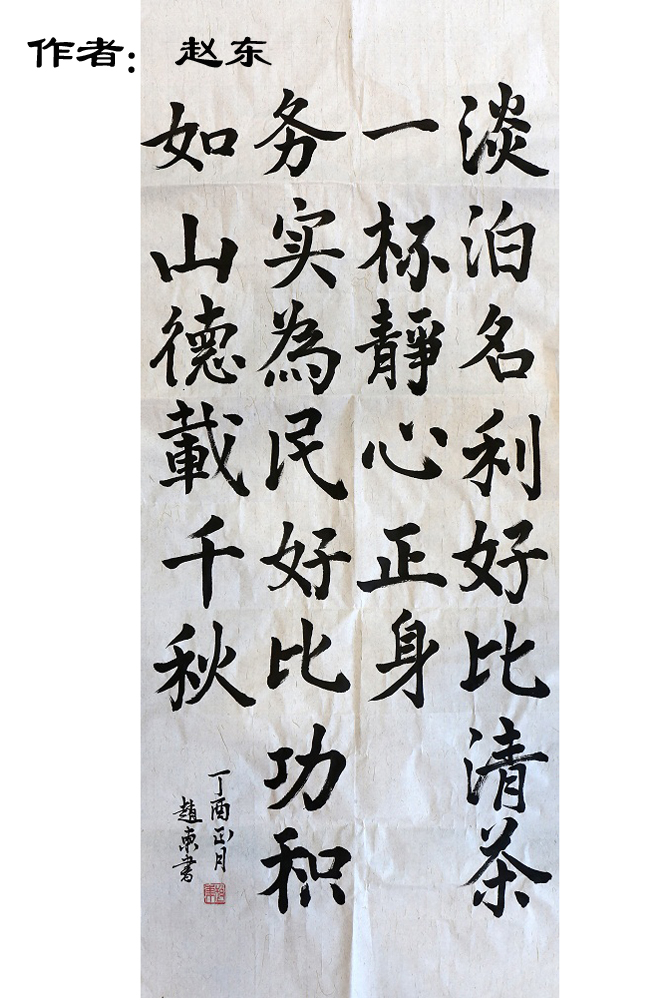 作者：赵东
淡泊名利好比清茶
一杯靜心正身
务实為民好比功积
如山德載千秋
丁酉正月
趙東書